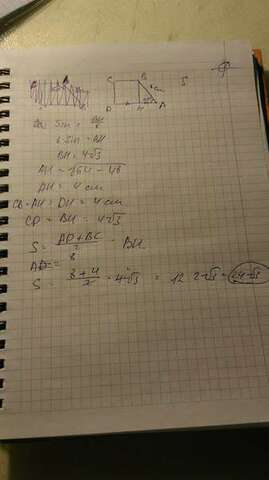 C B
8 cm
D H A
Sin = BH/8
8·Sin = BH
BH = 4√3
AH = √64 - 48
DH = 4 cm
CB = AH = DH = 4 cm
CD = BH = 4√3
S = AD + BC / 2 · BH
AD = 8
S = 8 + 4 / 2 · 4√3 = 12 · 2√3 = 24√3